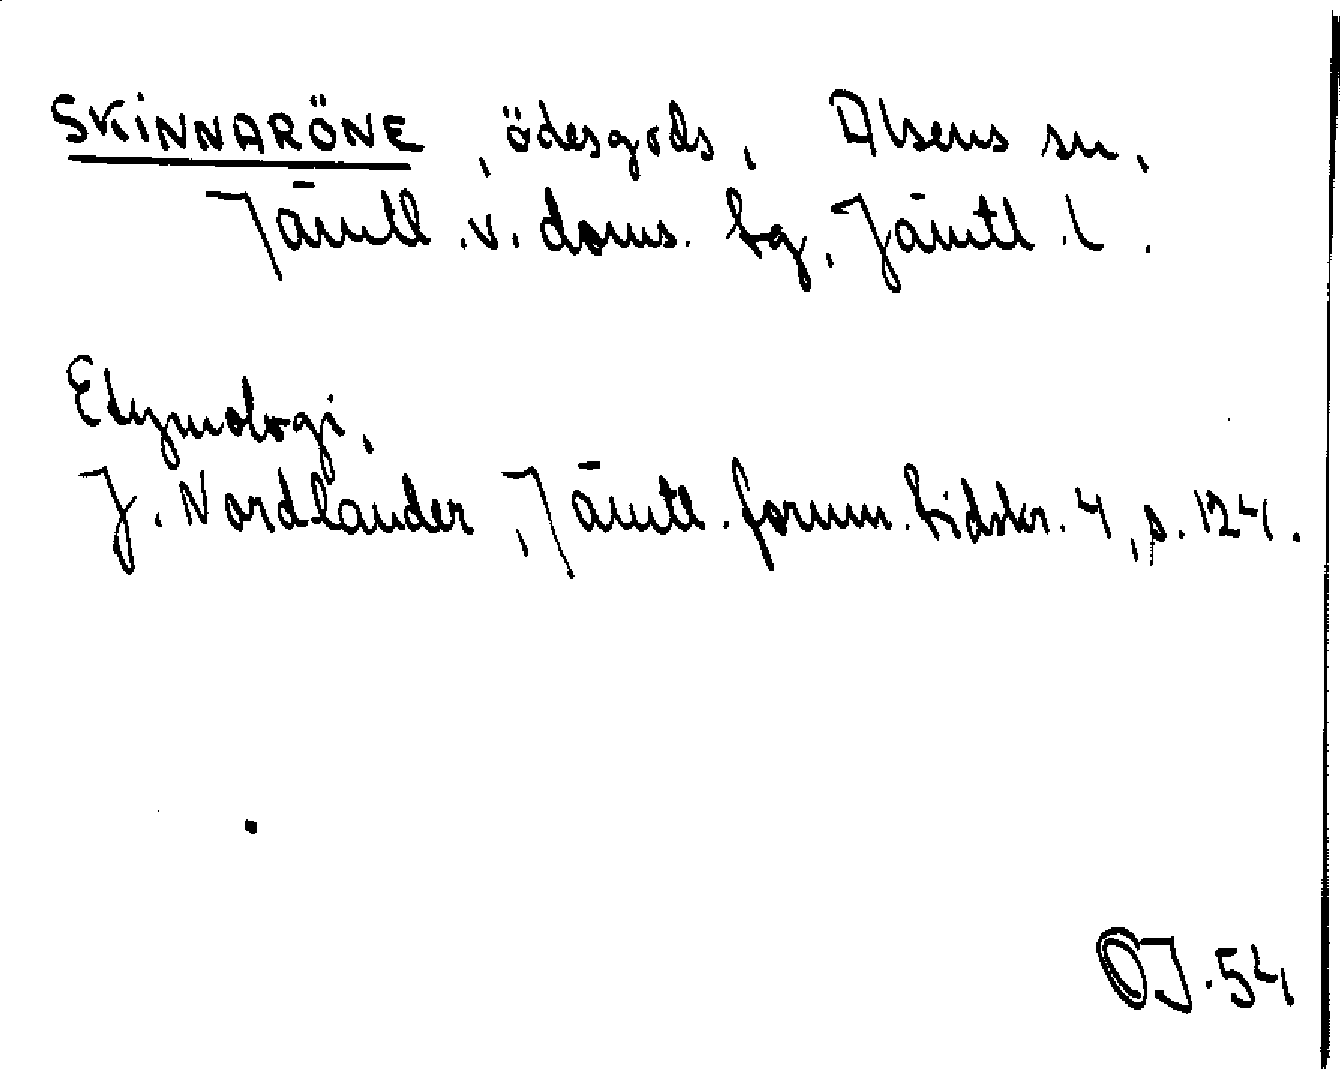 SKINNARÖNE, ödesgods, Alsens sn,
Jämtl. v. doms. tg, Jämtl. l.
Etymologi,
J. Nordlander, Jämtl. fornm. tidskr. 4, s. 124.
OJ. 54